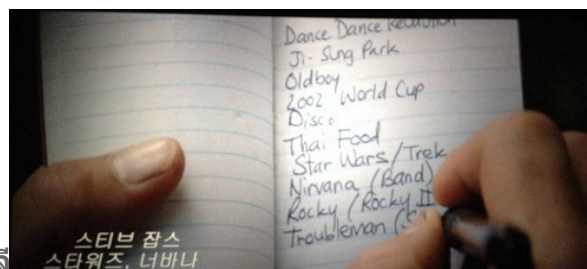 Dance Dance Revolution
Ji-Sung Park
Oldboy
2002 World Cup
Disco
Thai Food
Star Wars/Trek
Nirvana (Band)
Rocky (Rocky II
Troubleman (S
스티브 잡스
스타워즈, 너바나